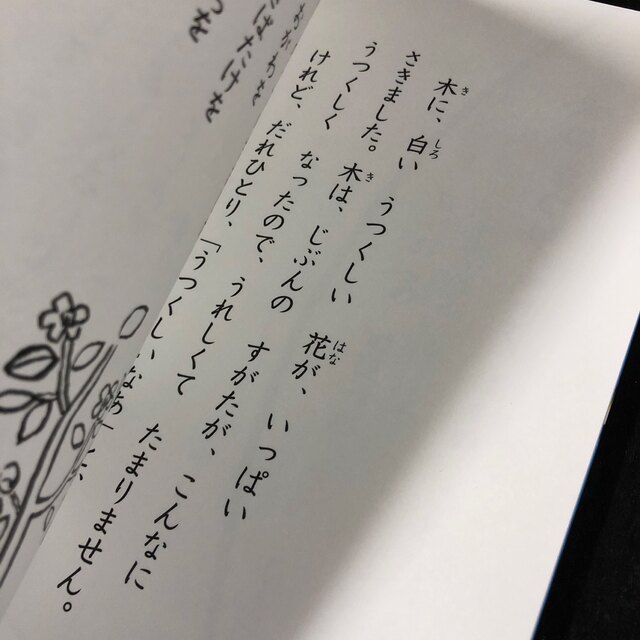 木に、白い　うつくしい　花が、いっぱい
さきました。木は、じぶんの　すがたが、こんなに
うつくしく　なったので、うれしくて　たまりません。
けれど、だれひとり、「うつくしいなあ
ばたけを